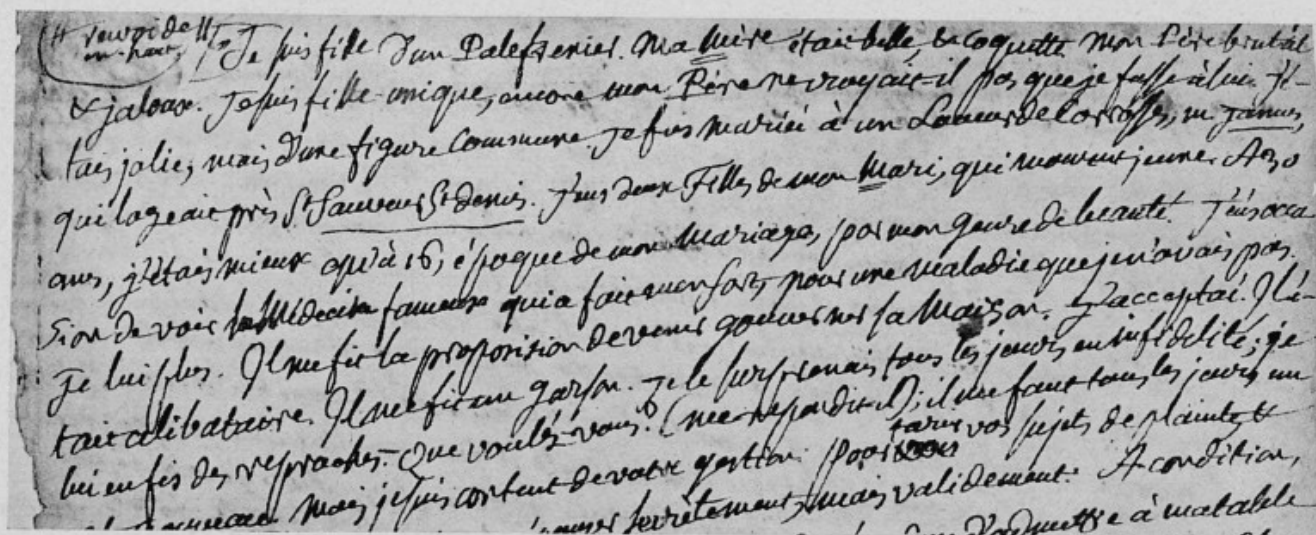 (# renvoi de ll
en-haut,
Je suis fille d'un Palefrenier. Ma Mère était belle, & coquette mon Père brutal
& jalous. Je suis fille-unique, encore mon Père ne croyait-il pas que je fusse à lui. J'é-
tais jolie, mais d'une figure commune. Je fus mariée à un Loueur de Carosses, m. Jamus,
qui logeait près St Sauveur St denis. J'eus deux Filles de mon Mari, qui mourut jeune. A 20
ans, j'étais mieux qu'à 16, époque de mon Mariage, par mon genre de beauté. J'eus occa-
sion de voir le Médecin fameux qui a fait pour une maladie que je n'avais pas.
Je lui plus. Il me fit la proposition de venir gouverner sa Maison. J'acceptai. Il é-
tait célibataire. Il me fit un garson. Je le surprenais tous les jours en infidélité; je
lui en fis des reproches. Que voulés-vous? (me repondit-il); il me faut tous les jours un
mais je suis content de votre gestion. pour tarir vos sujets de plainte
secrètement, mais validement. A condition,
à ma table